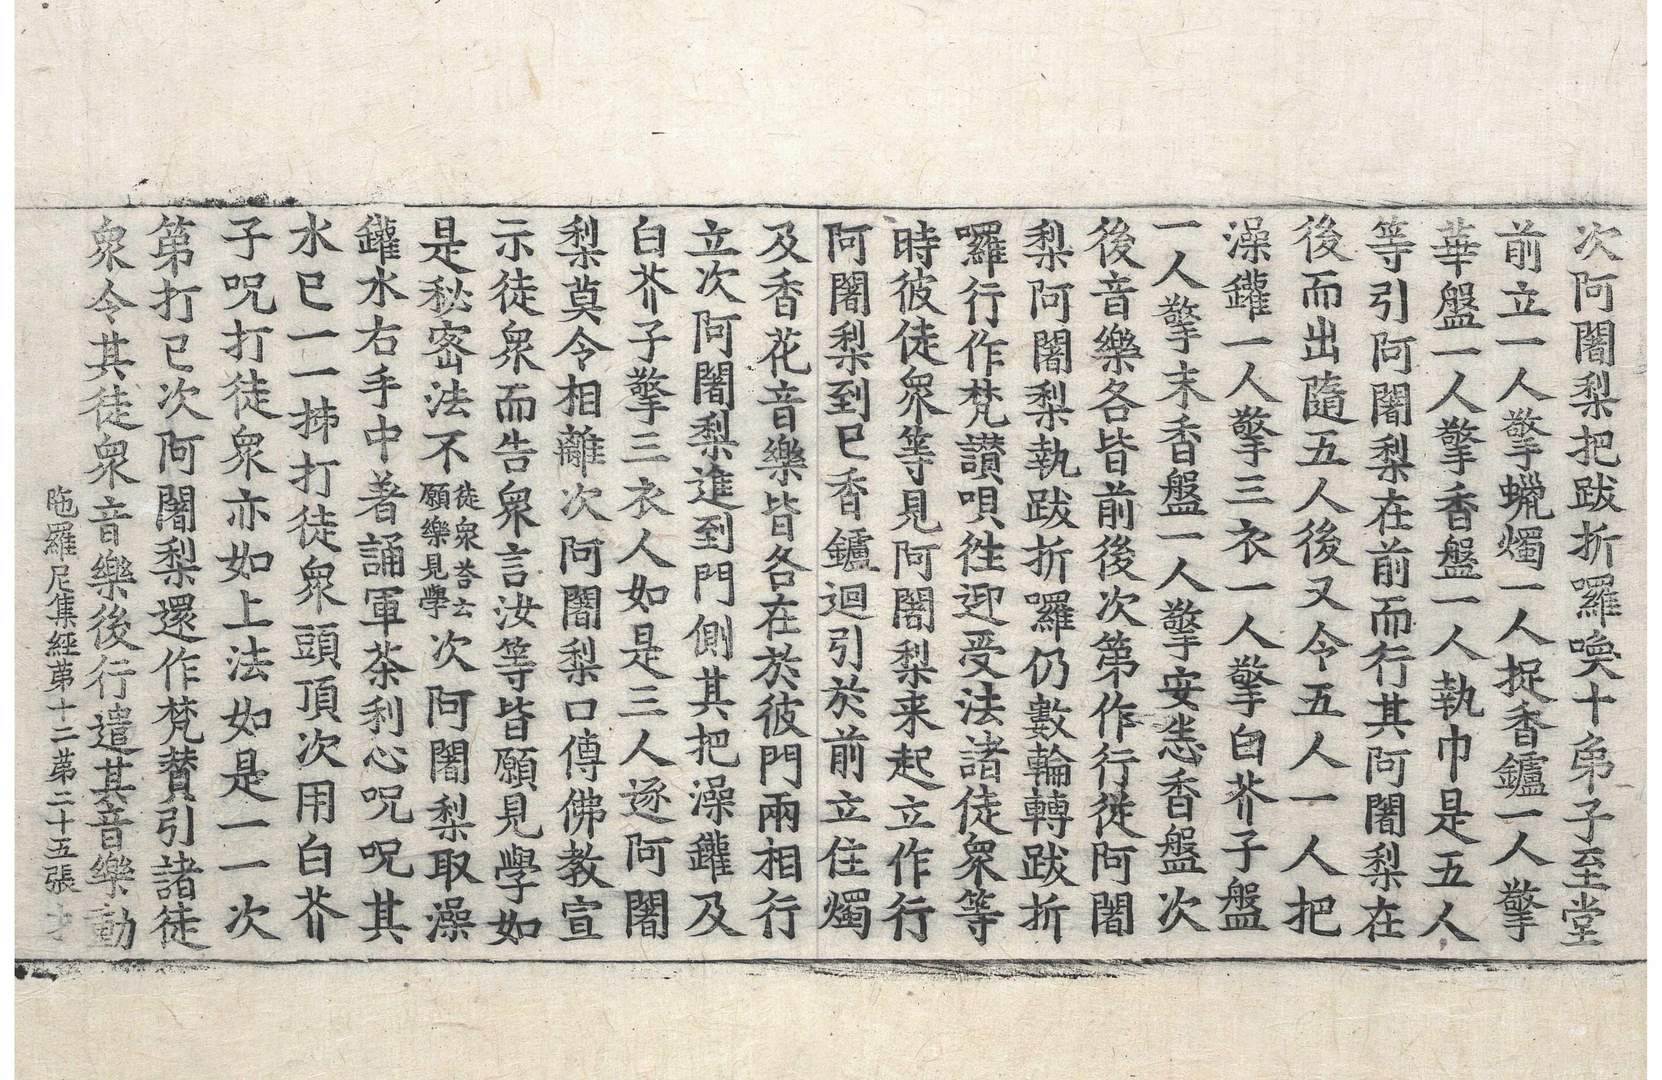 次阿闍梨把跋折囉喚十弟子至堂
前立一人擎蠟燭一人捉香鑪一人擎
華盤一人擎香盤一人執巾是五人
等引阿闍梨在前而行其阿闍梨在
後而出隨五人後又令五人一人把
澡鑵一人擎三衣一人擎白芥子盤
一人擎末香盤一人擎安悉香盤次
後音樂各皆前後次第作行從阿闍
梨阿闍梨執跋折囉仍數輪轉跋折
囉行作梵讃唄徃迎受法諸徒衆等
時彼徒衆等見阿闍梨来起立作行
阿闍梨到已香鑪迴引於前立住燭
及香花音樂皆各在於彼門兩相行
立次阿闍梨進到門側其把澡鑵及
白芥子擎三衣人如是三人逐阿闍
梨莫令相離次阿闍梨口傳佛教宣
示徒衆而告衆言汝等皆願見學如
是秘密法不徒衆荅云願樂見學次阿闍梨取澡
鑵水右手中著誦軍茶利心呪呪其
水已一一拂打徒衆頭頂次用白芥
子呪打徒衆亦如上法如是一一次
第打已次阿闍梨還作梵賛引諸徒
衆令其徒衆音樂後行遣其音樂動
陁羅尼集經苐十二苐二十五張才